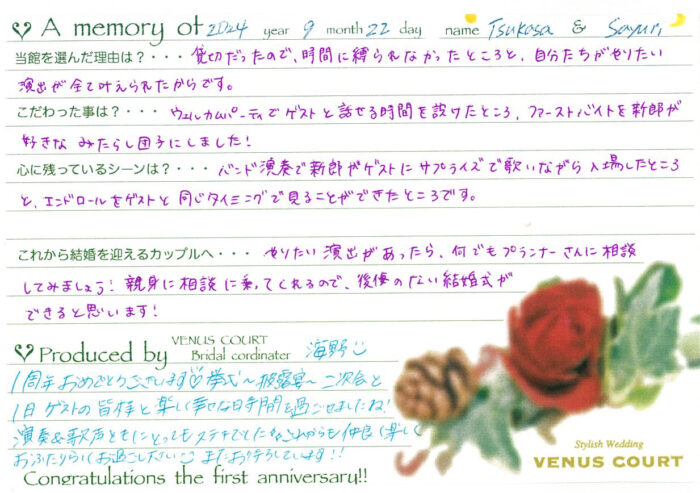 A memory of 2024 year 9 month 22 day name Tsukasa & Sayuri
当館を選んだ理由は？・・・貸切だったので、時間に縛られなかったところと、自分たちがやりたい
演出が全て叶えられたからです。
こだわった事は？・・・ウェルカムパーティでゲストと話せる時間を設けたところ、ファーストバイトを新郎が
好きなみたらし団子にしました！
心に残っているシーンは？・・・バンド演奏で新郎がゲストにサプライズで歌いながら入場したところ
と、エンドロールをゲストと同じタイミングで見ることができたところです。
これから結婚を迎えるカップルへ・・・やりたい演出があったら、何でもプランナーさんに相談
してみましょう！親身に相談に乗ってくれるので、後悔のない結婚式が
できると思います！
Produced by VENUS COURT Bridal cordinater 海野
1周年おめでとうございます♡挙式〜披露宴〜二次会と
1日ゲストの皆様と楽しく幸せな日時間を過ごせましたね！
演奏&歌声ともにとってもステキでした これからも仲良く楽しく
おふたりらしくお過ごしください またお待ちしています!!
Congratulations the first anniversary!!
Stylish Wedding
VENUS COURT